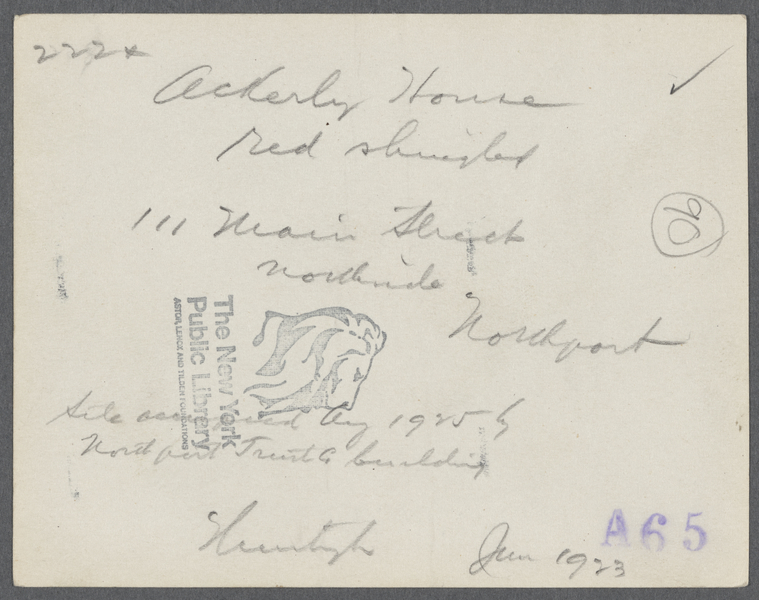 222x
Ackerly House
red shingled
111 Main Street
northside
Northport
90
The New York
Public Library
ASTOR, LENOX AND TILDEN FOUNDATIONS
Site occupied by 1925 by
Northport Trust Co building
Huntington
Jun 1923
A65